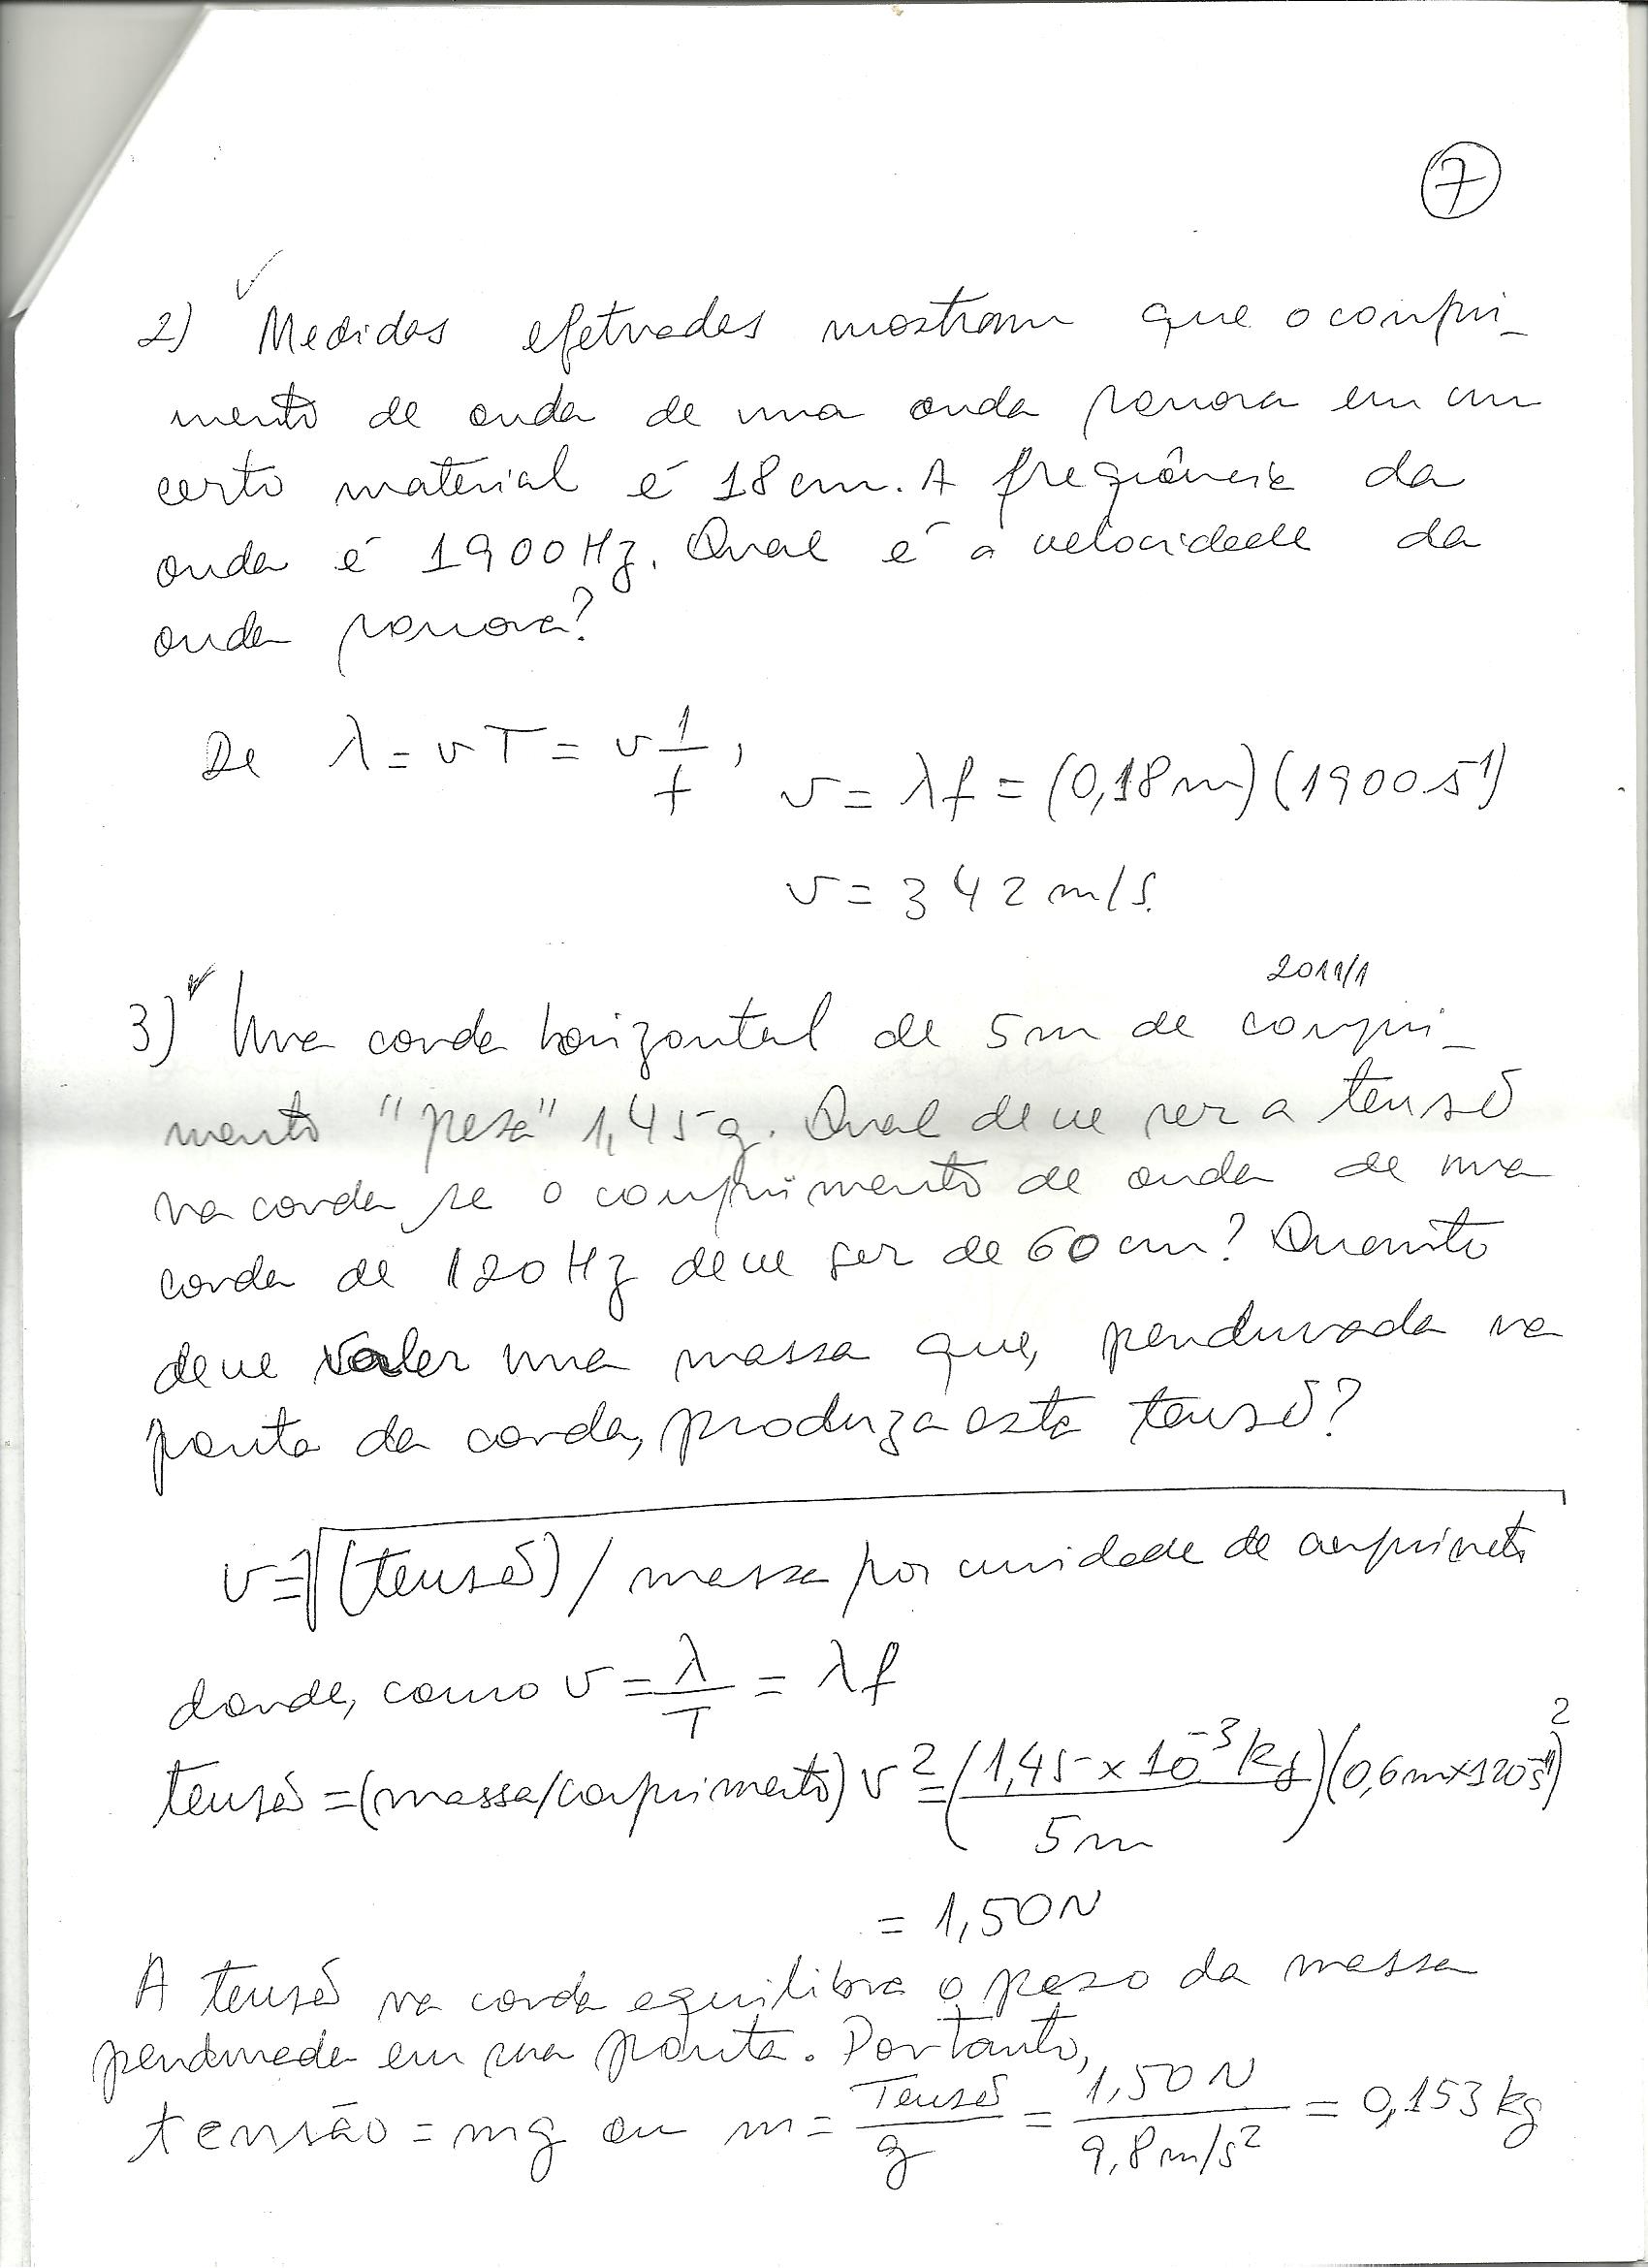 7
2) Medidas efetuadas mostram que o compri-
mento de onda de uma onda sonora em um
certo material é 18cm. A freqüência da
onda é 1900Hz. Qual é a velocidade da
onda sonora?
De λ = vT = v 1/f , v = λf = (0,18m)(1900 s⁻¹)
v = 342 m/s.
2011/1
3) Uma corda horizontal de 5m de compri-
mento "pesa" 1,45g. Qual deve ser a tensão
na corda se o comprimento de onda de uma
corda de 120Hz deve ser de 60cm? Quanto
deve valer uma massa que, pendurada na
ponta da corda, produza esta tensão?
v = √(tensão) / massa por unidade de comprimento
donde, como v = λ/T = λf
tensão = (massa/comprimento) v² = (1,45 x 10⁻³ kg / 5m)(0,6m x 120 s⁻¹)²
= 1,50N
A tensão na corda equilibra o peso da massa
pendurada em sua ponta. Portanto,
tensão = mg ou m = Tensão/g = 1,50N / 9,8m/s² = 0,153kg